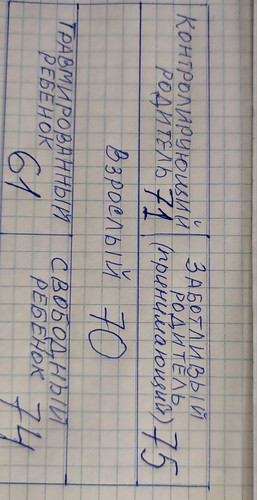 КОНТРОЛИРУЮЩИЙ
РОДИТЕЛЬ 71
ЗАБОТЛИВЫЙ
РОДИТЕЛЬ
(принимающий) 75
ВЗРОСЛЫЙ 70
ТРАВМИРОВАННЫЙ
РЕБЕНОК
61
СВОБОДНЫЙ
РЕБЕНОК 74